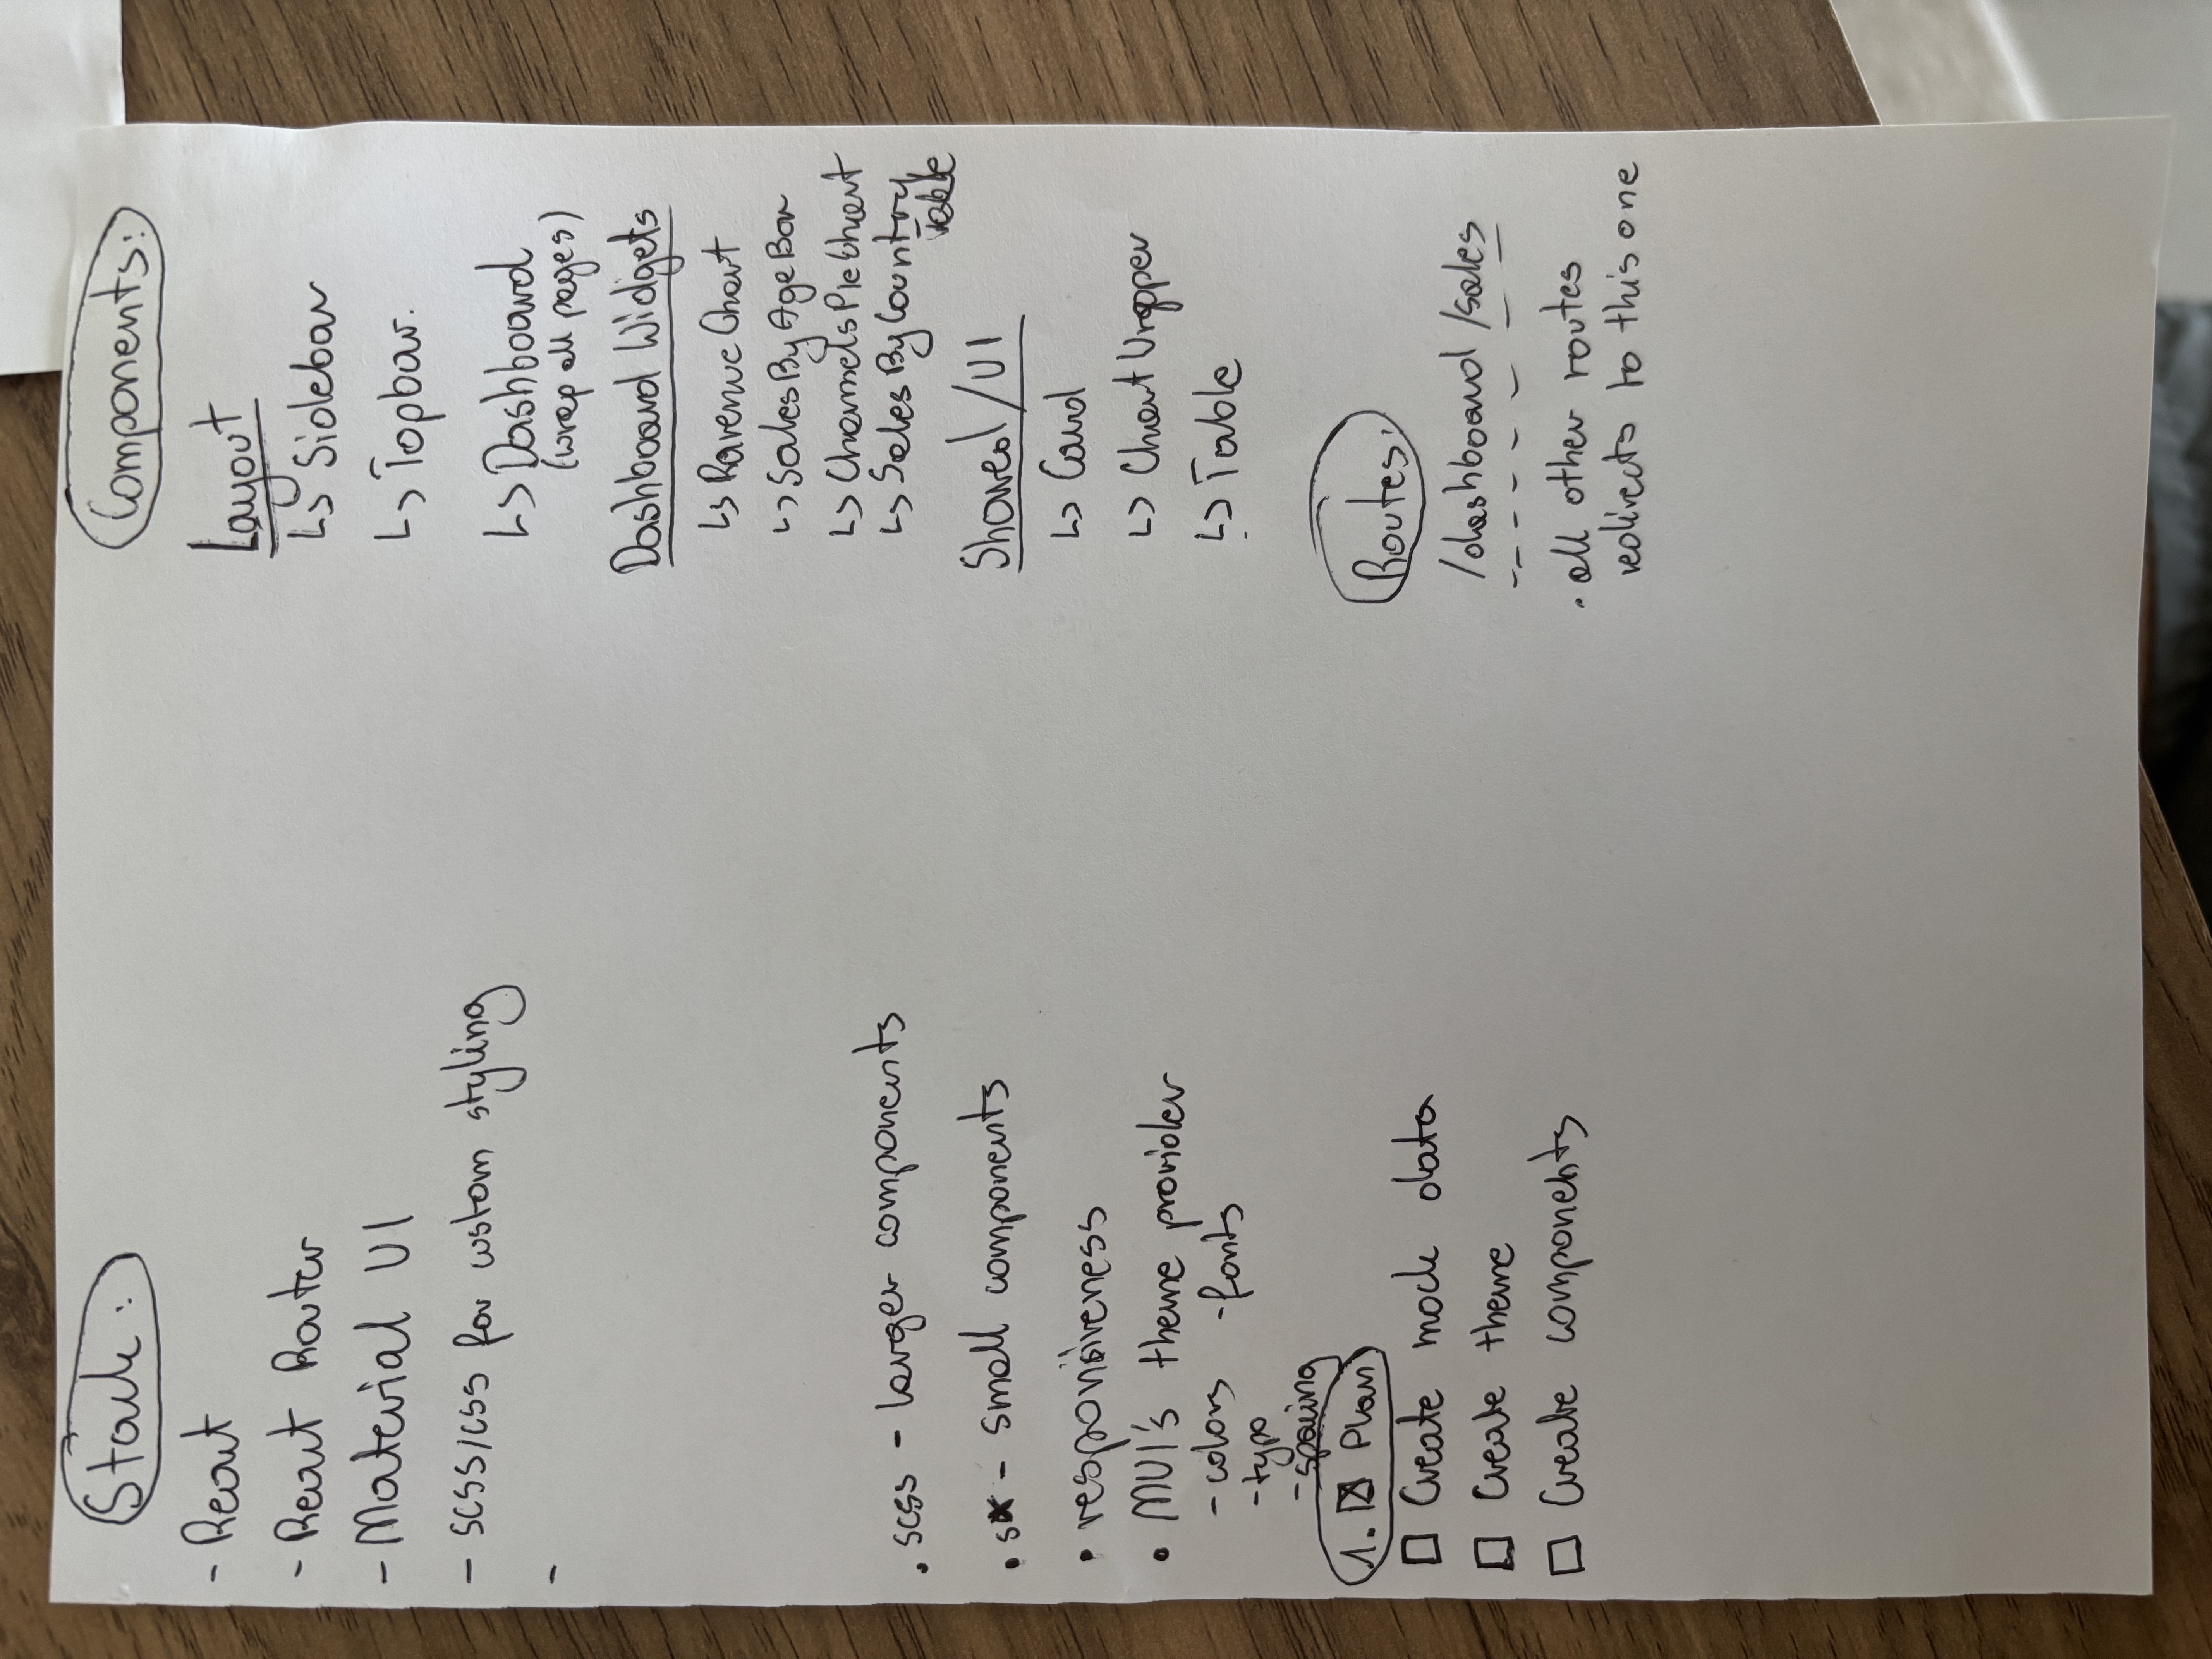 Stack:
- React
- React Router
- Material UI
- SCSS/CSS for custom styling
-
. scss - larger components
• sx - small components
• responsiveness
• MUI's theme provider
- colors - fonts
- typo
- spacing
1. ☒ Plan
☐ Create mock data
☐ Create theme
☐ Create components
Components:
Layout
↳ Sidebar
↳ Topbar.
↳ Dashboard
(wrap all pages)
Dashboard Widgets
↳ Ravenue Chart
↳ SalesByAgeBar
↳ ChannelsPieChart
↳ SalesByCountry
Table
Shared/UI
↳ Card
↳ Chart Wrapper
↳ Table
Routes:
/dashboard /sales
. all other routes
redirects to this one